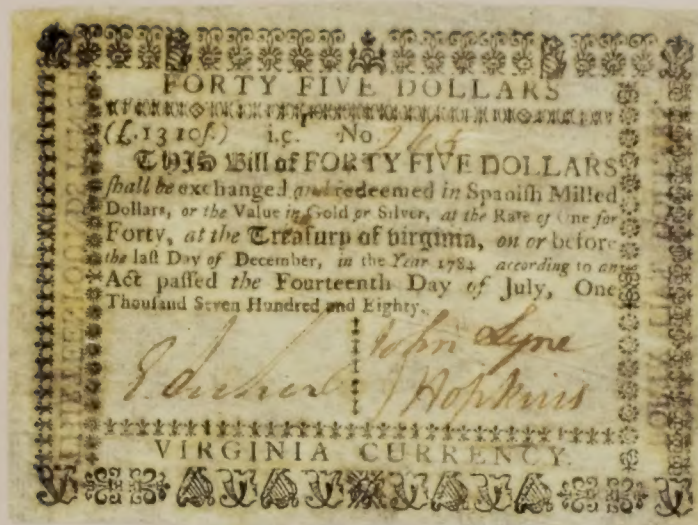 FORTY FIVE DOLLARS
(£.13 10ſ.) i.c. No
THIS Bill of FORTY FIVE DOLLARS
ſhall be exchanged and redeemed in Spaniſh Milled
Dollars, or the Value in Gold or Silver, at the Rate of One for
Forty, at the Treaſury of Virginia, on or before
the laſt Day of December, in the Year 1784 according to an
Act paſſed the Fourteenth Day of July, One
Thouſand Seven Hundred and Eighty.
John Lyne
J Hopkins
VIRGINIA CURRENCY.